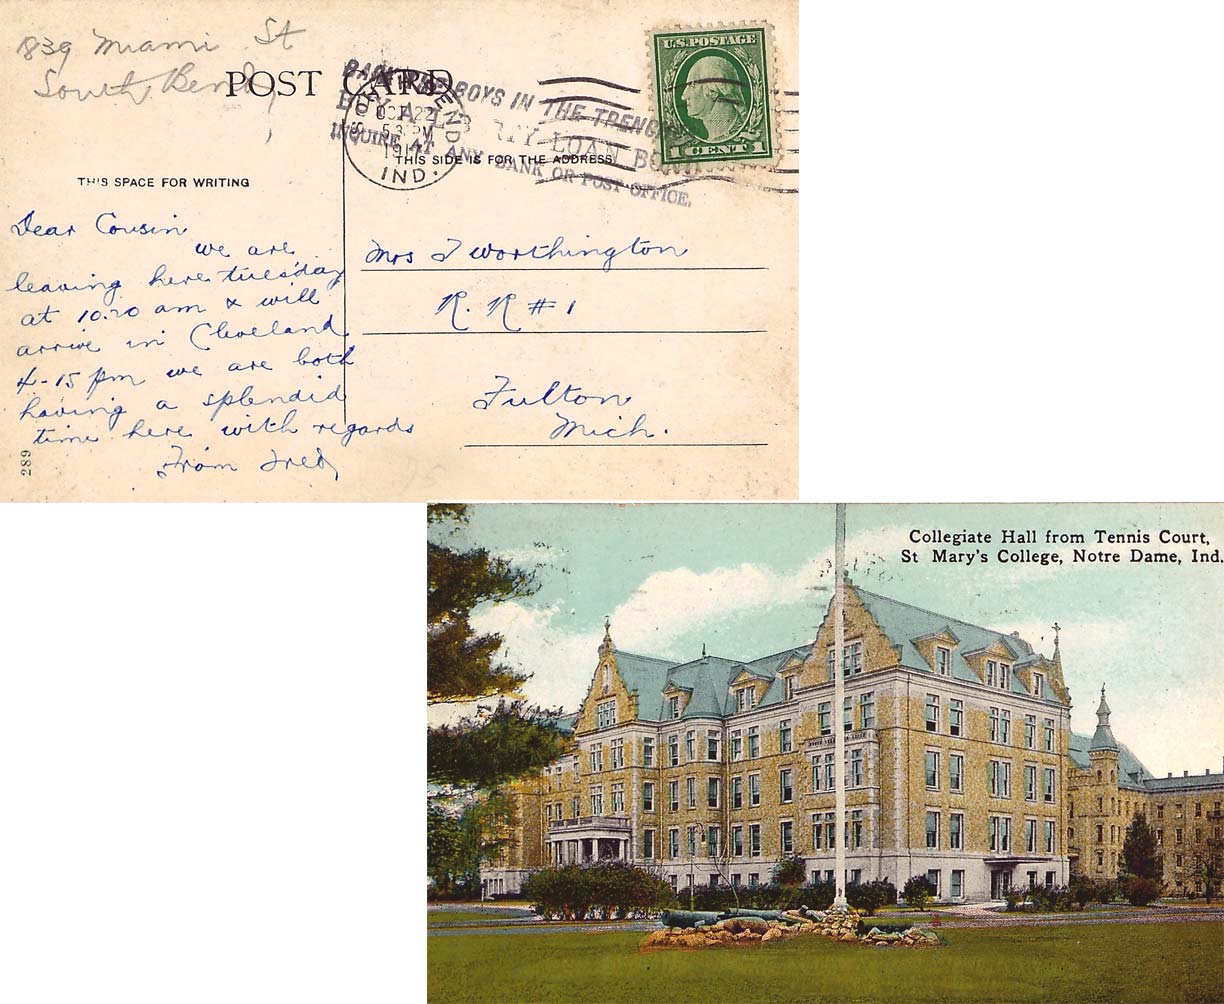 1839 Miami St
South Bend,
POST CARD
BACK THE BOYS IN THE TRENCHES
BUY A LIBERTY LOAN BOND
INQUIRE AT ANY BANK OR POST OFFICE.
SOUTH BEND
OCT 22
5 30 PM
1917
IND.
U.S. POSTAGE
1 CENT 1
THIS SIDE IS FOR THE ADDRESS
THIS SPACE FOR WRITING
Dear Cousin
we are
leaving here tuesday
at 10.20 am & will
arrive in Cleveland
4-15 pm we are both
having a splendid
time here with regards
From Fred
289
Mrs J Worthington
R. R # 1
Fulton
Mich.
Collegiate Hall from Tennis Court,
St Mary's College, Notre Dame, Ind.